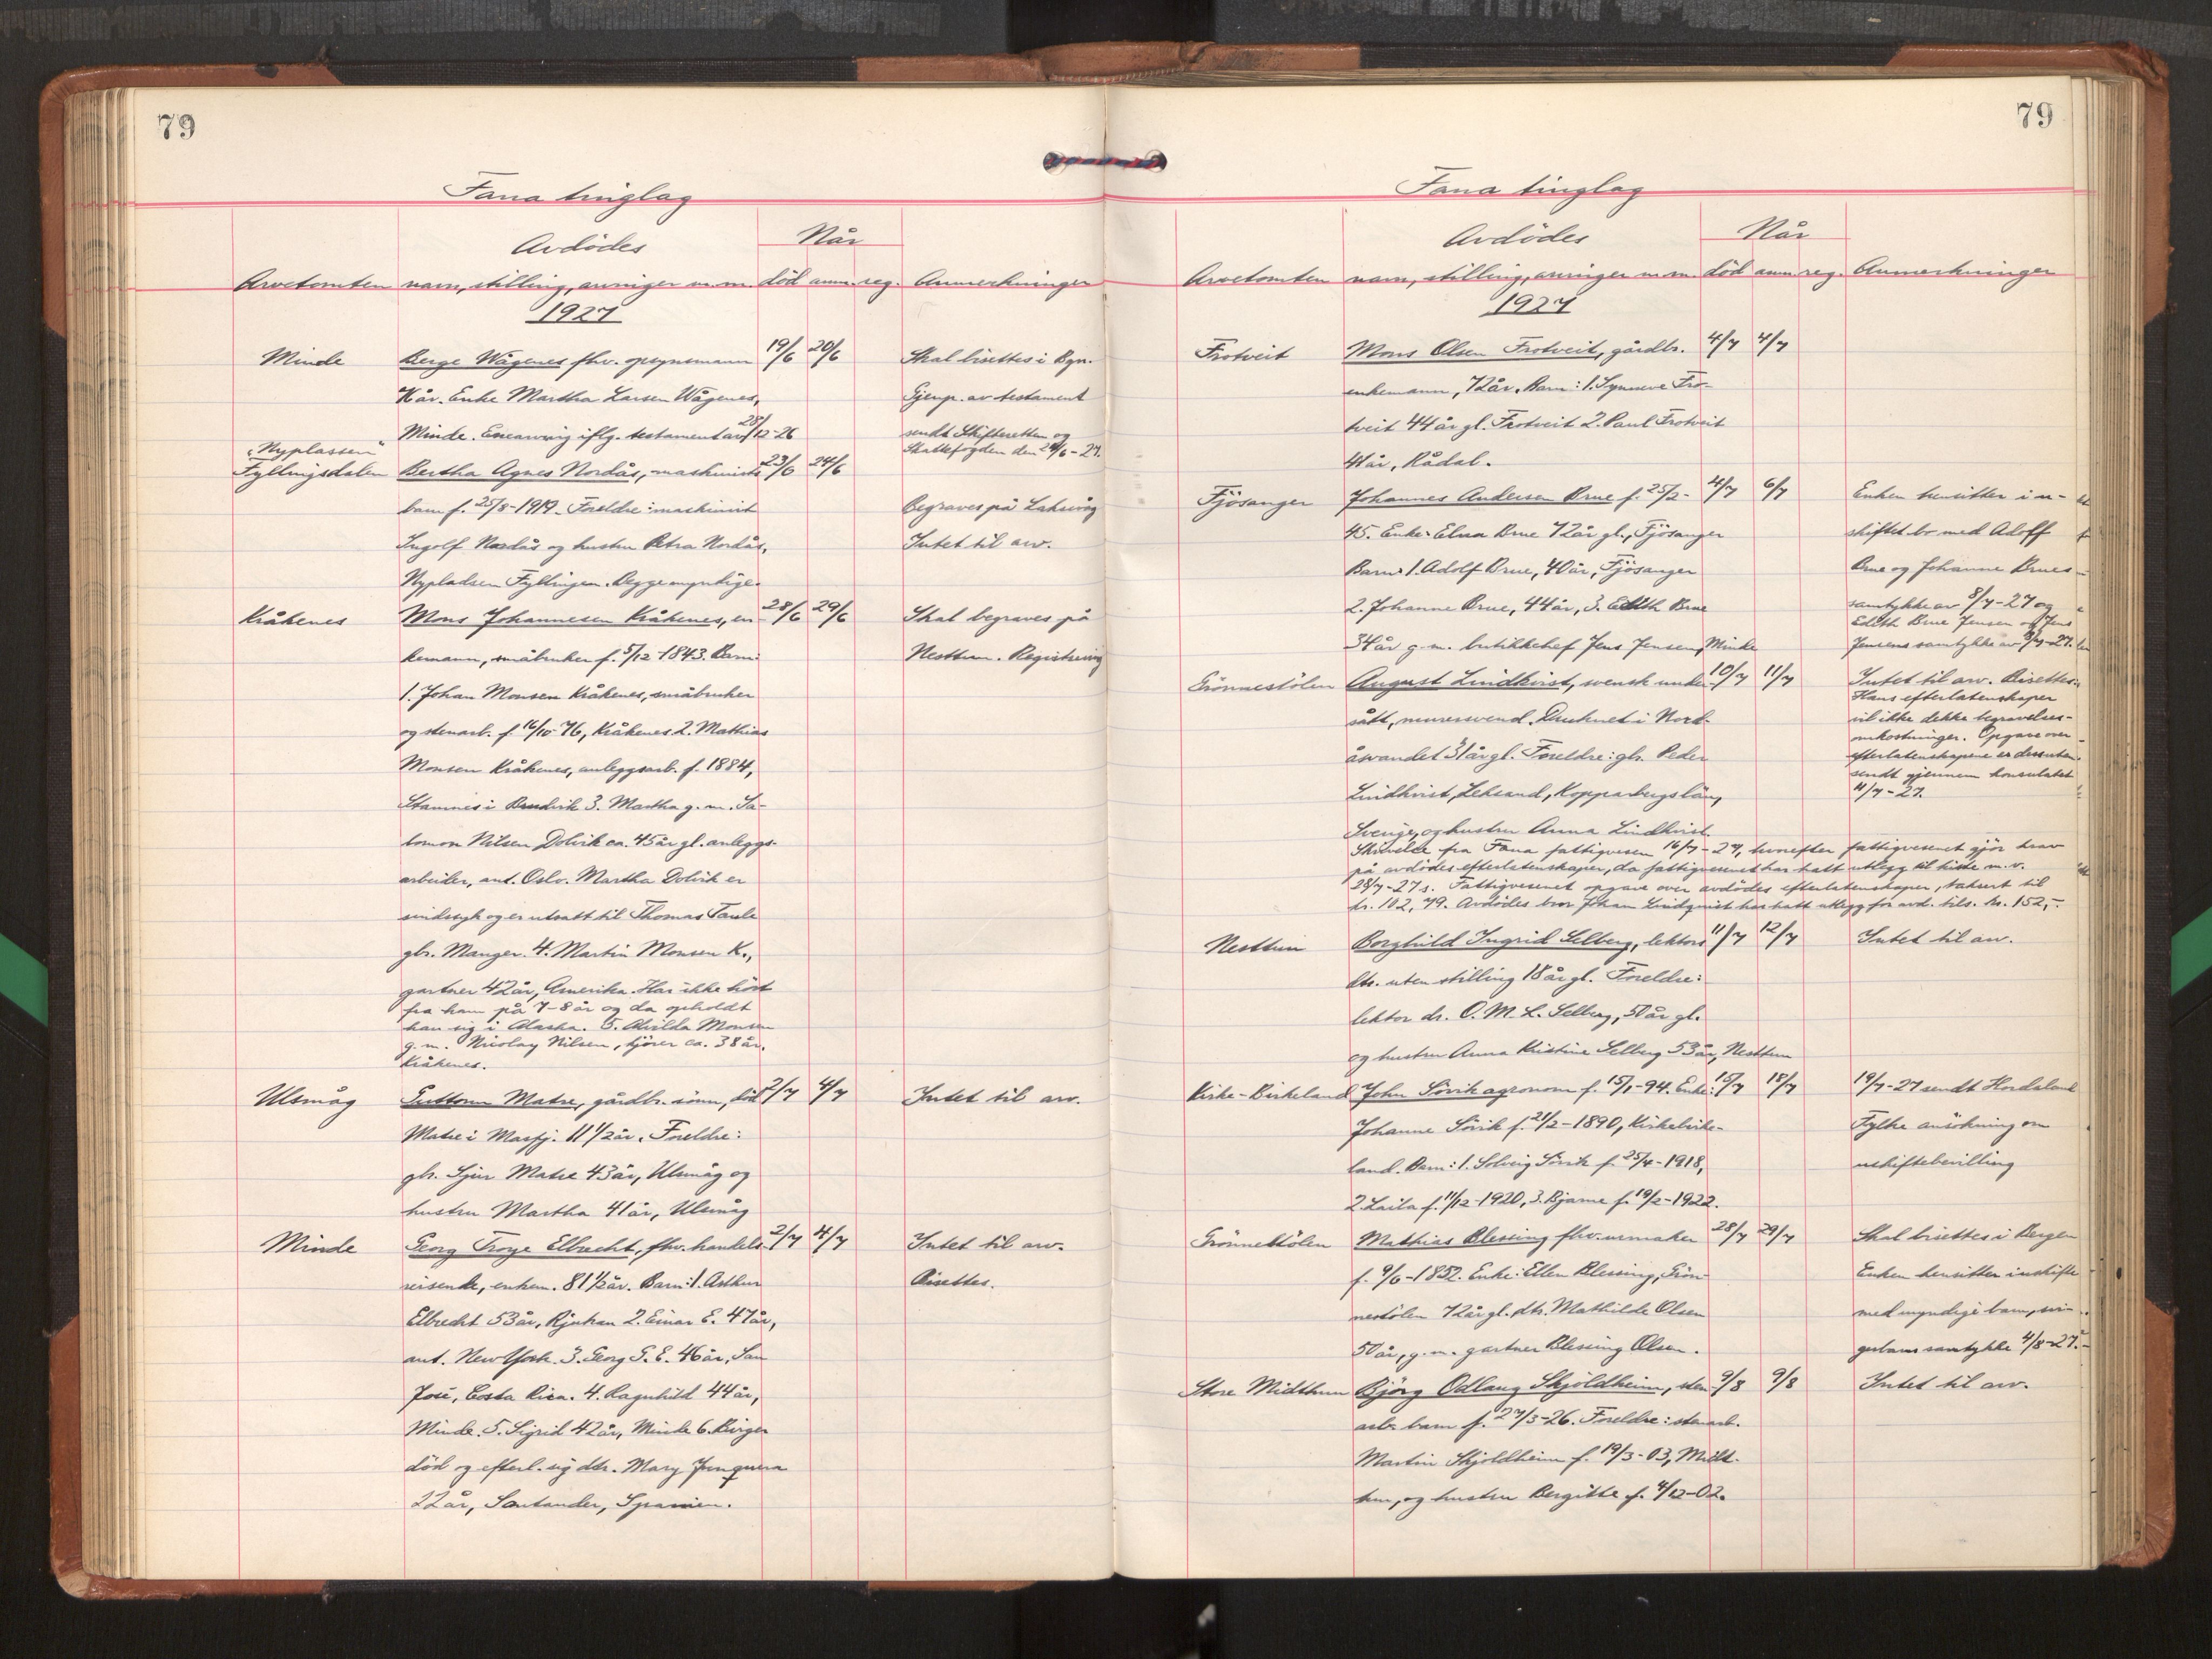 79
Fana tinglag
Avdödes
Når
Arvetomten navn, stilling, arvinger m.m. död anm. reg. Anmerkninger
1927
Minde Berge Wågenes fhv. opsynsmann 19/6 20/6 Skal bisettes i Bgn.
år. Enke Martha Larsen Wågenes, Gjenp. av testament
Minde. Enearving iflg. testament av 28/12-26 sendt Skifteretten og
Skattefogden den 24/6-27.
"Nyplassen"
Fyllingsdalen Bertha Agnes Nordås, maskinists 23/6 24/6
barn f. 25/8-1919. Foreldre: maskinist Begraves på Laksevåg
Ingolf Nordås og hustru Petra Nordås, Intet til arv.
Nypladsen Fyllingen. Begge myndige.
Kråkenes Mons Johannesen Kråkenes, en- 28/6 29/6 Skal begraves på
kemann, småbruker f. 5/12-1843. Barn: Nesttun. Registrering
1. Johan Monsen Kråkenes, småbruker
og stenarb. f. 16/10-76, Kråkenes 2. Mathias
Monsen Kråkenes, anleggsarb. f. 1884,
Stamnes i Bruvik 3. Martha g. m. Sa-
lomon Nilsen Dolvik ca. 45 år gl. anleggs-
arbeider, ant. Oslo. Martha Dolvik er
sindssyk og er utsatt til Thomas Toule
gbr. Manger. 4. Martin Monsen K.,
gartner 42 år, Amerika. Har ikke hört
fra ham på 7-8 år og da opholdt
han sig i Alaska. 5. Alvilda Monsen
g. m. Nicolay Nilsen, kjörer ca. 38 år.
Kråkenes.
Ulsmåg Guttorm Matre, gårdbr. sönn, död 2/7 4/7 Intet til arv.
Matre i Masfj. 11 1/2 år. Foreldre:
gbr. Sjur Matre 43 år, Ulsmåg og
hustru Martha 41 år, Ulsmåg
Minde Georg Troye Elbrecht, fhv. handels- 2/7 4/7 Intet til arv.
reisende, enkem. 81 1/2 år. Barn: 1. Arthur Bisettes.
Elbrecht 53 år, Rjukan 2. Einar E. 47 år,
ant. New York. 3. Georg G. E. 46 år, San
José, Costa Rica. 4. Ragnhild 44 år,
Minde. 5. Sigrid 42 år, Minde 6. Birger
död og efterl. sig dtr. Mary Junquera
22 år, Santander, Spanien.
79
Fana tinglag
Avdödes
Når
Arvetomten navn, stilling, arvinger m.m. död anm. reg. Anmerkninger
1927
Frotveit Mons Olsen Frotveit, gårdbr. 4/7 4/7
enkemann, 72 år. Barn: 1. Synneve Fro-
tveit 44 år gl. Frotveit 2. Paul Frotveit
41 år, Rådal.
Fjösanger Johannes Andersen Brue f. 25/2- 4/7 6/7 Enken hensitter i u-
45. Enke: Elna Brue 72 år gl., Fjösanger skiftet bo med Adolf
Barn: 1. Adolf Brue, 40 år, Fjösanger Brue og Johanne Brues
2. Johanne Brue, 44 år, 3. Edith Brue samtykke av 8/7-27 og
Edith Brue Jensen og Jens
34 år g. m. butikkchef Jens Jensen, Minde Jensens samtykke av 9/7-27.
Grönnestölen August Lindkvist, svensk under- 10/7 11/7 Intet til arv. Bisettes.
Hans efterlatenskaper
sått, murersvend. Druknet i Nord- vil ikke dekke begravelses-
omkostninger. Opgave over
åsvandet 31 år gl. Foreldre: gbr. Peder efterlatenskapene er dessuten
sendt gjennem konsulatet
Lindkvist, Leksand, Kopparbergs län, 11/7-27.
Sverige, og hustru Anna Lindkvist.
Skrivelse fra Fana fattigvesen 16/7-27, hvorefter fattigvesenet gjör krav
på avdödes efterlatenskaper, da fattigvesenet har hatt utlegg til kiste m. v.
28/7-27 s. Fattigvesenet opgave over avdödes efterlatenskaper, taksert til
kr. 102,79. Avdödes bror Johan Lindquist har hatt utlegg for avd. tils. kr. 152,-.
Nesttun Borghild Ingrid Selberg, lektors 11/7 12/7 Intet til arv.
dtr. uten stilling 18 år gl. Foreldre:
lektor dr. O. M. L. Selberg, 50 år gl.
og hustru Anna Kristine Selberg 53 år, Nesttun
Kirke-Birkeland John Sövik agronom f. 15/1-94. Enke: 15/7 18/7 19/7-27 sendt Hordaland
Johanne Sövik f. 21/2-1890, Kirkebirke- Fylke ansökning om
land. Barn: 1. Solveig Sövik f. 25/4-1918, uskiftebevilling
2. Laila f. 11/12-1920, 3. Bjarne f. 19/2-1922.
Grönnestölen Mathias Blessing fhv. urmaker 28/7 29/7 Skal bisettes i Bergen
f. 9/6-1852. Enke: Ellen Blessing, Grön- Enken hensitter i uskifte
nestölen 72 år gl. dtr. Mathilde Olsen med myndige barn, svi-
50 år, g. m. gartner Blessing Olsen. gerbarns samtykke 4/8-27.
Store Midttun Björg Odlaug Skjoldheim, sten- 9/8 9/8 Intet til arv.
arb. barn f. 27/3-26. Foreldre: stenarb.
Martin Skjoldheim f. 19/3-03, Midt-
tun, og hustru Bergitte f. 4/12-02.